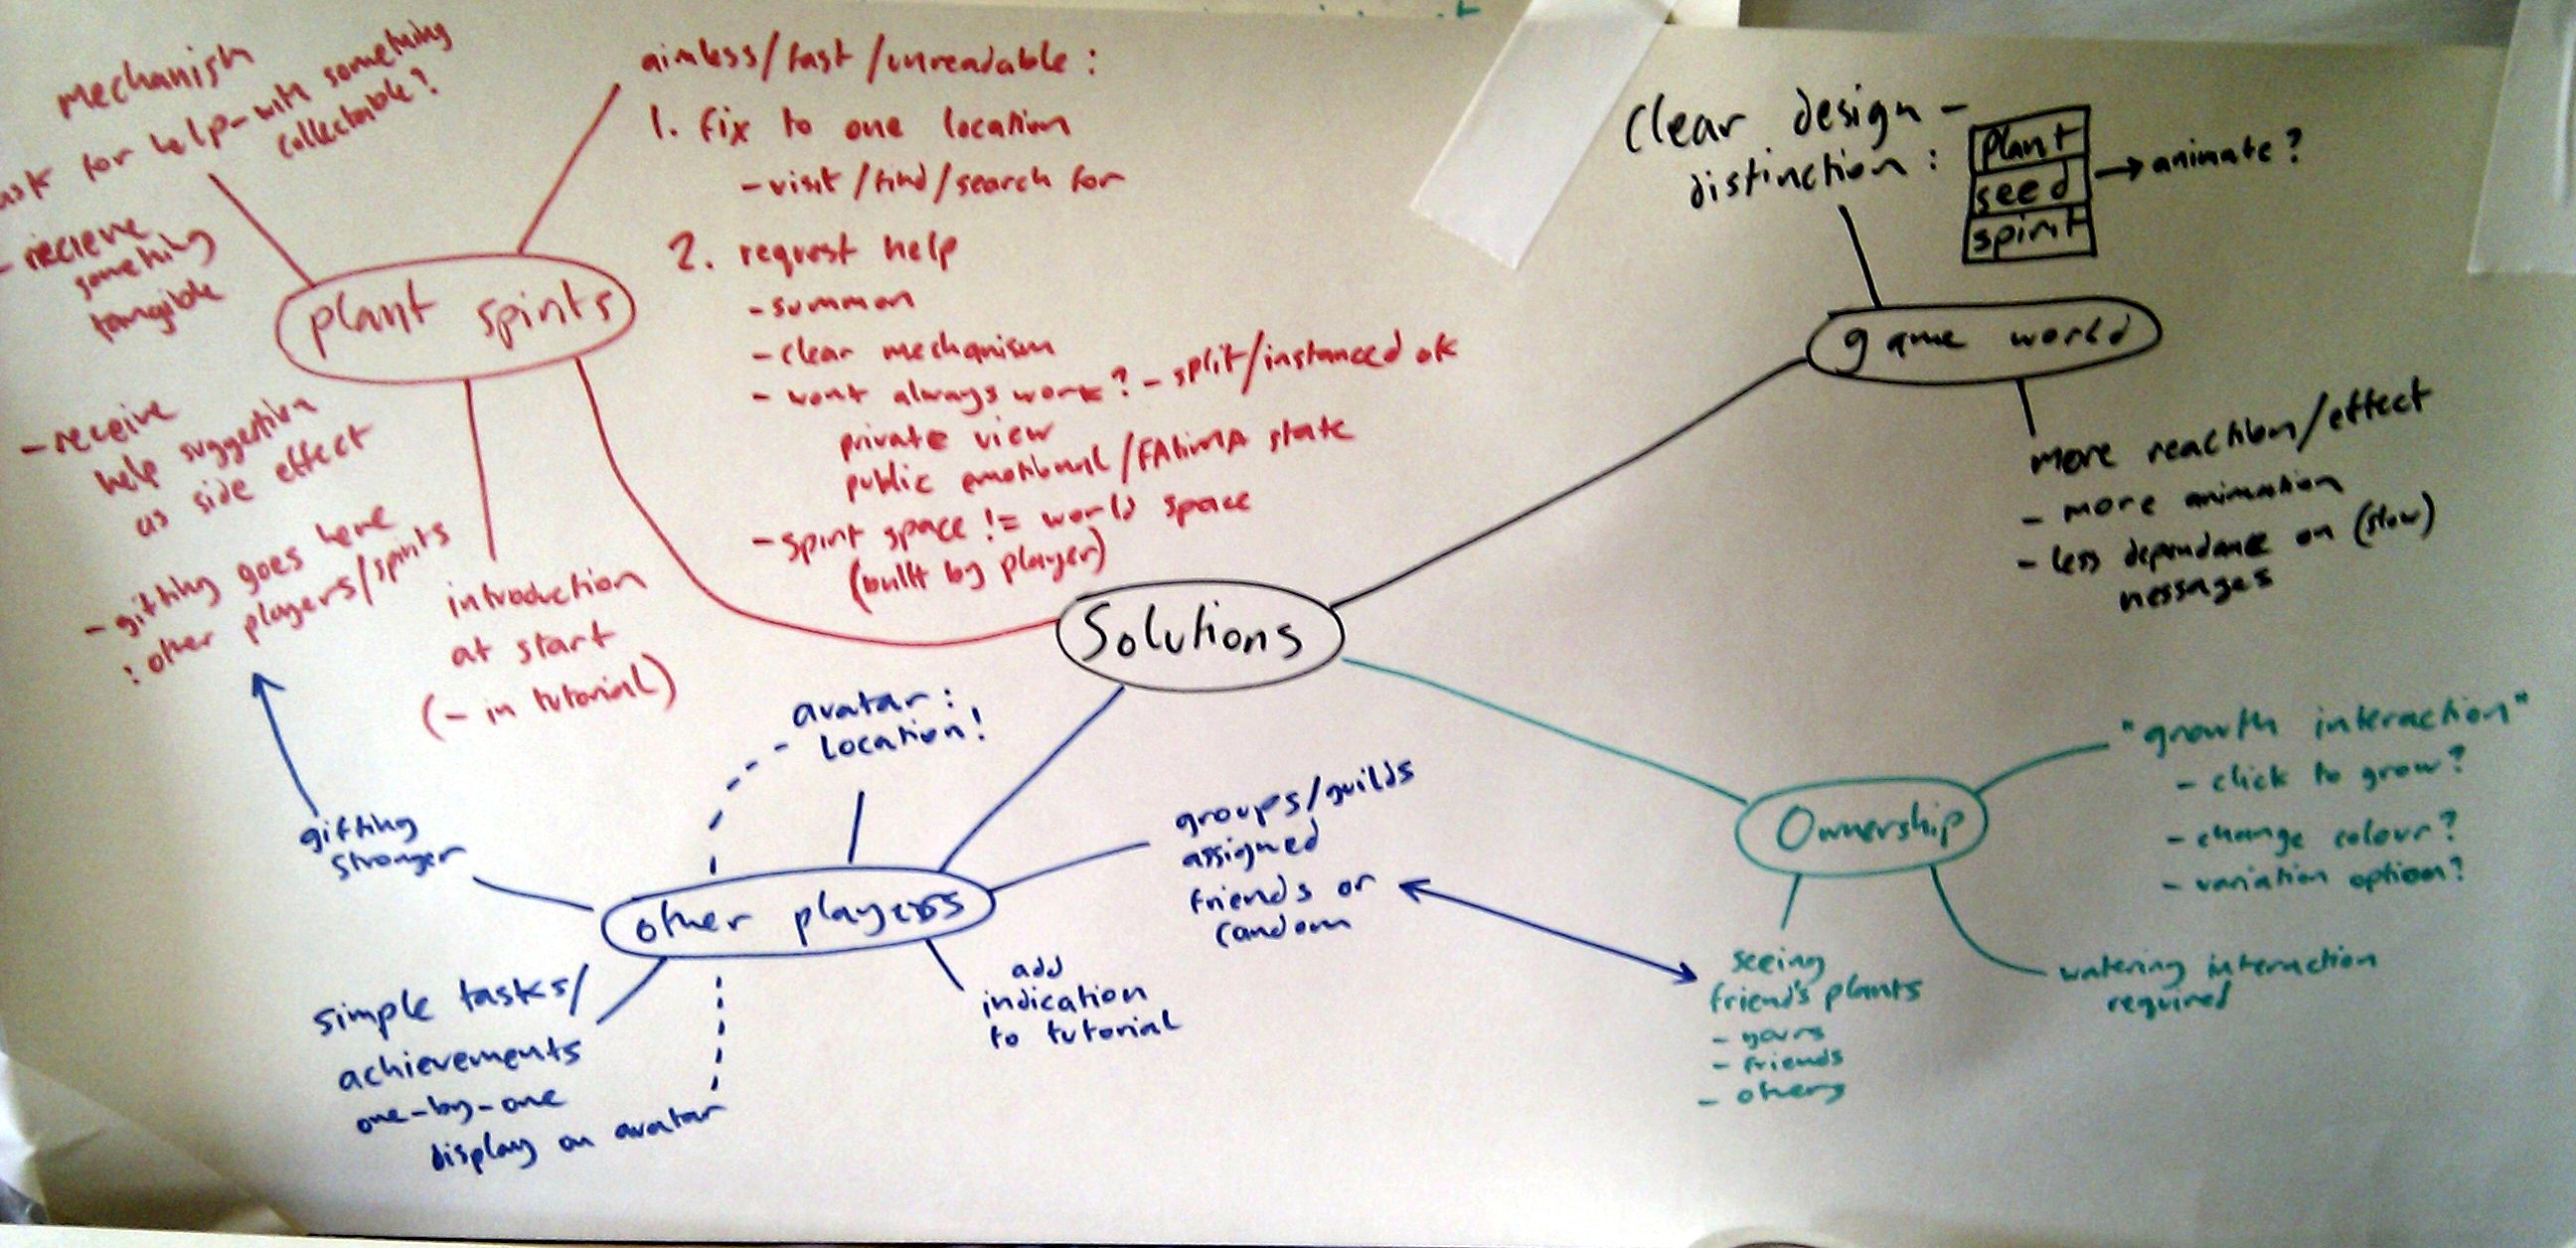 mechanism
ask for help - with something
collectable?
- recieve
something
tangible
- receive
help suggestion
as side effect
- gifting goes here
: other players/spirits
plant spirits
aimless/fast/unreadable:
1. fix to one location
- visit/find/search for
2. request help
- summon
- clear mechanism
- wont always work? - split/instanced ok
private view
public emotional/FAtiMA state
- spirit space != world space
(built by player)
introduction
at start
(- in tutorial)
Solutions
Clear design -
distinction:
plant
seed
spirit
→ animate?
game world
more reaction/effect
- more animation
- less dependance on (slow)
messages
Ownership
"growth interaction"
- click to grow?
- change colour?
- variation option?
watering interaction
required
seeing
friend's plants
- yours
- friends
- others
avatar:
location!
gifting
stronger
other players
groups/guilds
assigned
friends or
random
add
indication
to tutorial
simple tasks/
achievements
one-by-one
display on avatar